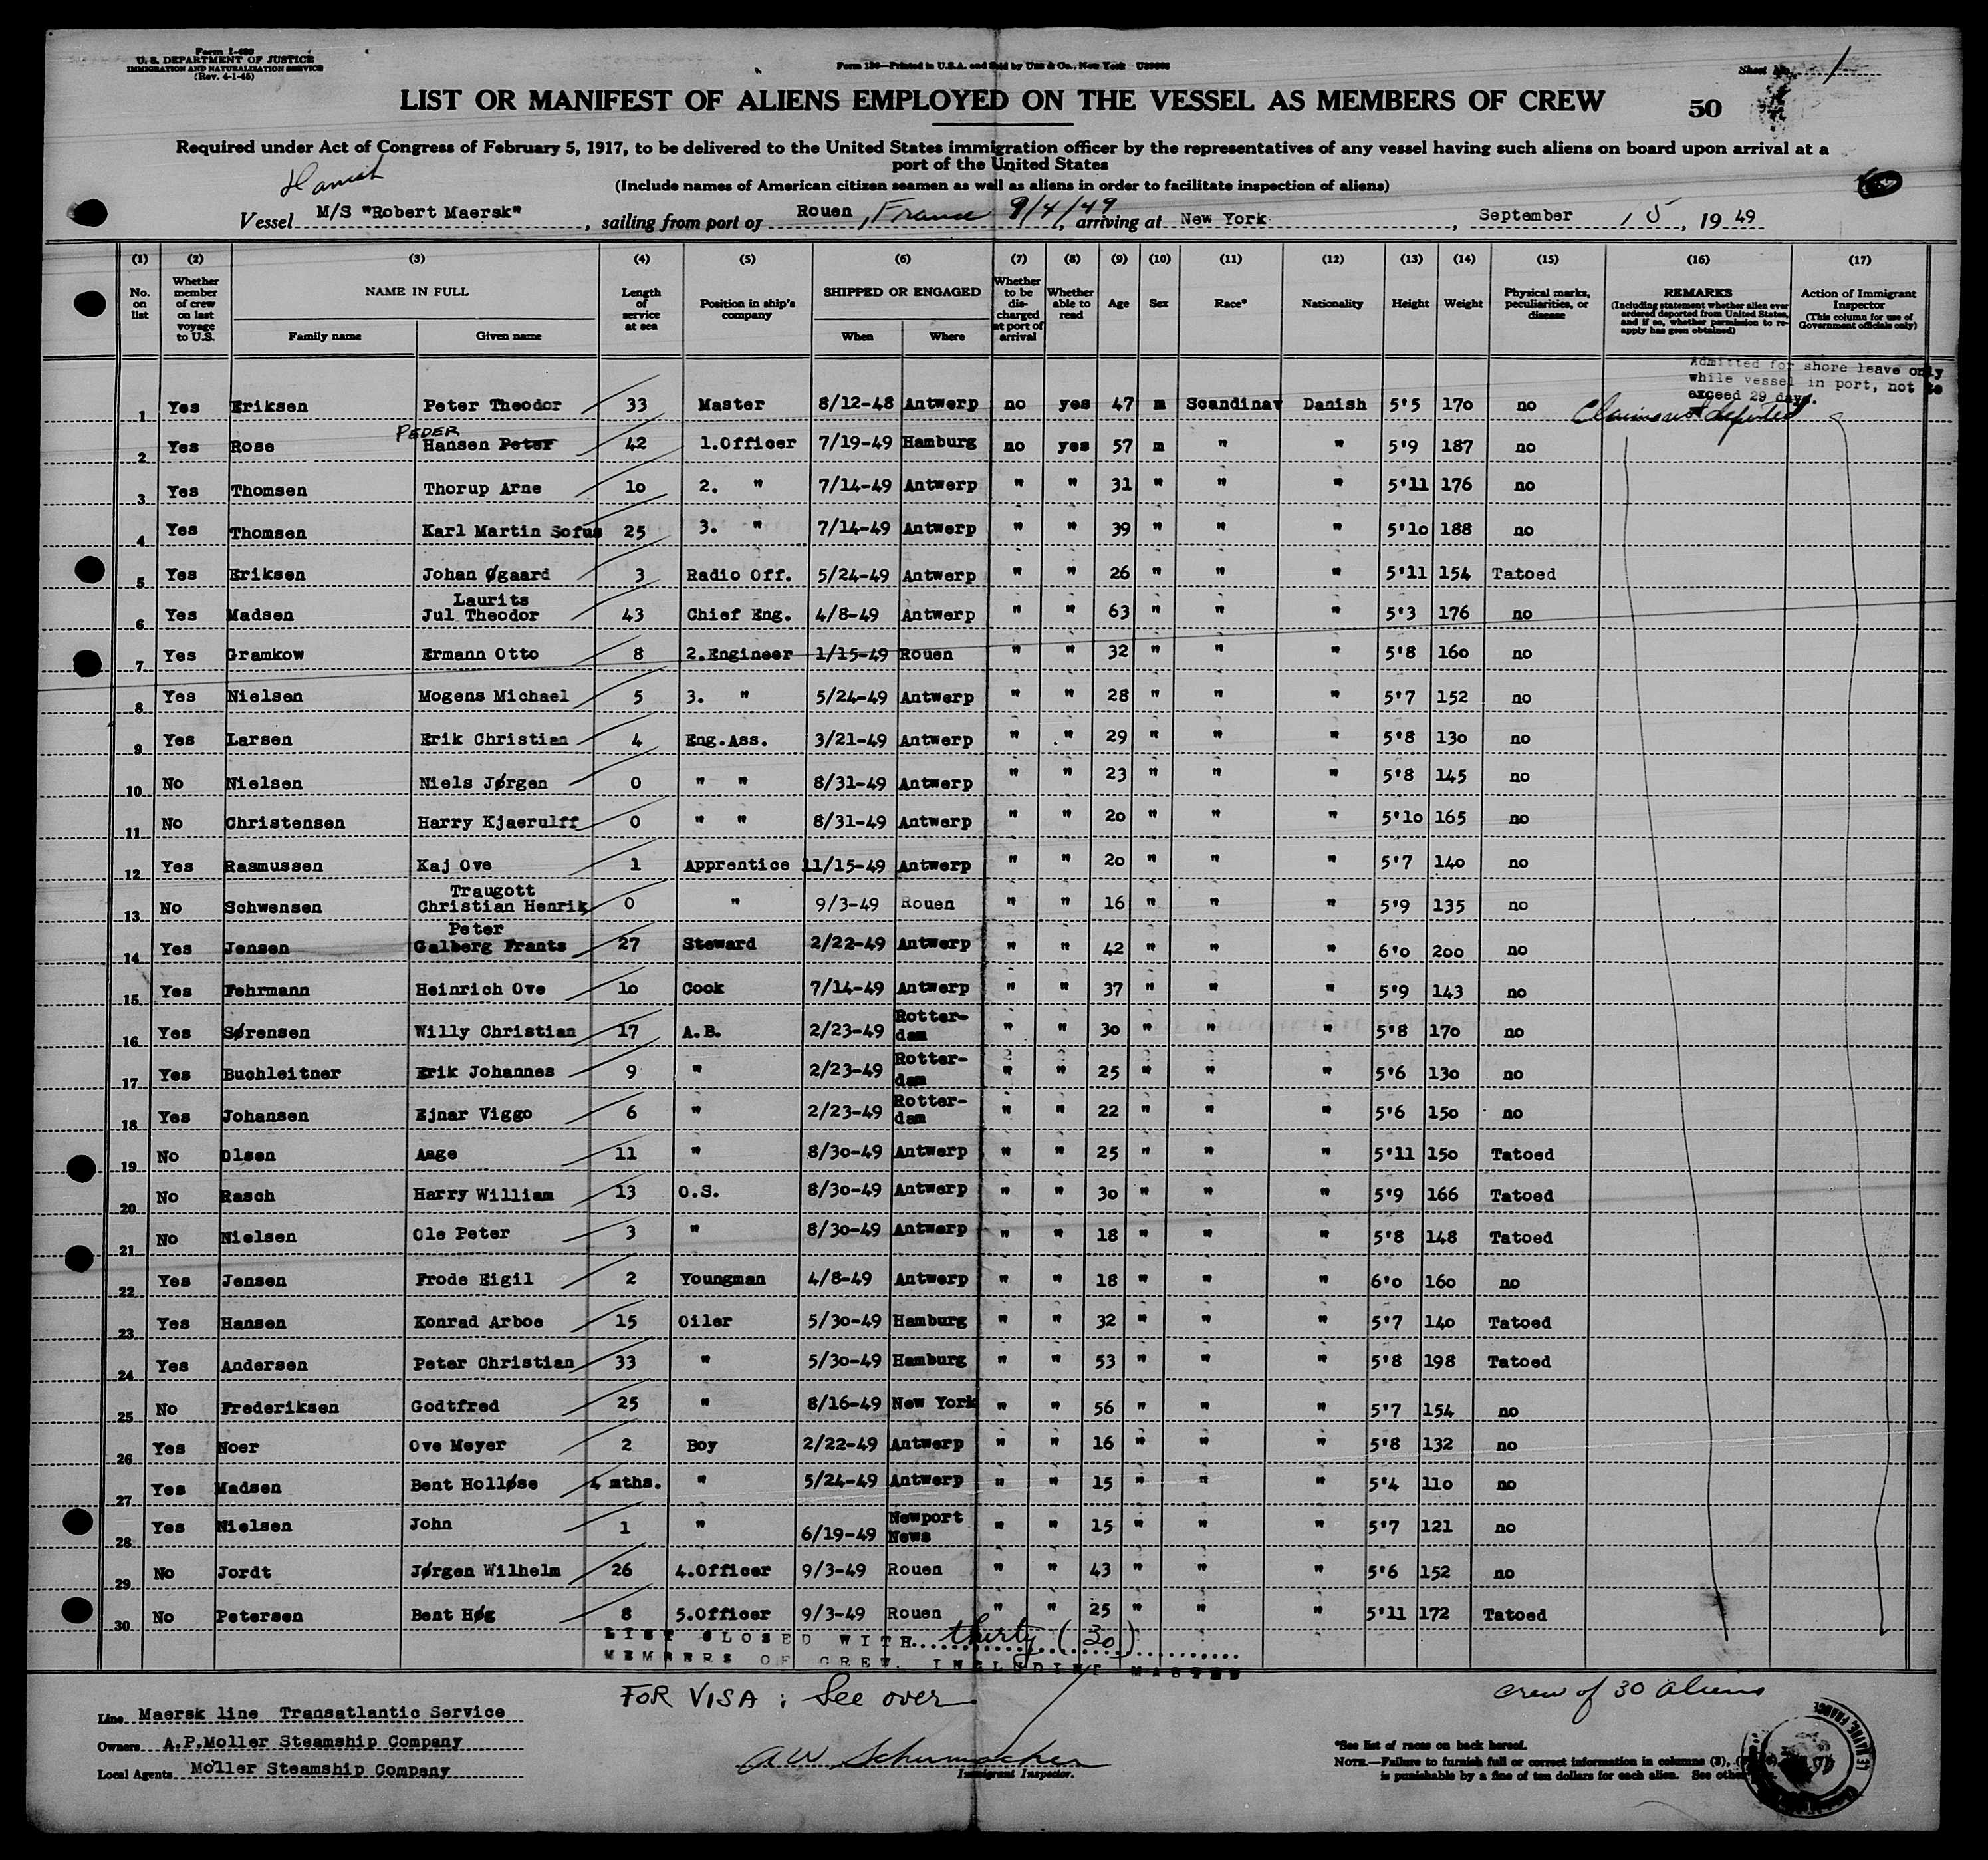 Form I-480
U. S. DEPARTMENT OF JUSTICE
IMMIGRATION AND NATURALIZATION SERVICE
(Rev. 4-1-45)
Form 180—Printed in U.S.A. and Sold by Unz & Co., New York
Sheet No. 1
LIST OR MANIFEST OF ALIENS EMPLOYED ON THE VESSEL AS MEMBERS OF CREW
50
Required under Act of Congress of February 5, 1917, to be delivered to the United States immigration officer by the representatives of any vessel having such aliens on board upon arrival at a
port of the United States
(Include names of American citizen seamen as well as aliens in order to facilitate inspection of aliens)
Danish
Vessel M/S "Robert Maersk", sailing from port of Rouen, France 9/4/49, arriving at New York, September 15, 1949
(1) (2) (3) (4) (5) (6) (7) (8) (9) (10) (11) (12) (13) (14) (15) (16) (17)
No. on list
Whether member of crew on last voyage to U.S.
NAME IN FULL
Family name Given name
Length of service at sea
Position in ship's company
SHIPPED OR ENGAGED
When Where
Whether to be discharged at port of arrival
Whether able to read
Age Sex Race* Nationality Height Weight
Physical marks, peculiarities, or disease
REMARKS
(Including statement whether alien ever ordered deported from United States, and if so, whether permission to reapply has been obtained)
Action of Immigrant Inspector
(This column for use of Government officials only)
Admitted for shore leave only
while vessel in port, not to
exceed 29 days.
Claims not deported
1 Yes Eriksen Peter Theodor 33 Master 8/12-48 Antwerp no yes 47 m Scandinav Danish 5'5 170 no
PEDER
2 Yes Rose Hansen Peter 42 1.Officer 7/19-49 Hamburg no yes 57 m " " 5'9 187 no
3 Yes Thomsen Thorup Arne 10 2. " 7/14-49 Antwerp " " 31 " " " 5'11 176 no
4 Yes Thomsen Karl Martin Sofus 25 3. " 7/14-49 Antwerp " " 39 " " " 5'10 188 no
5 Yes Eriksen Johan Øgaard 3 Radio Off. 5/24-49 Antwerp " " 26 " " " 5'11 154 Tatoed
Laurits
6 Yes Madsen Jul Theodor 43 Chief Eng. 4/8-49 Antwerp " " 63 " " " 5'3 176 no
7 Yes Gramkow Ermann Otto 8 2.Engineer 1/15-49 Rouen " " 32 " " " 5'8 160 no
8 Yes Nielsen Mogens Michael 5 3. " 5/24-49 Antwerp " " 28 " " " 5'7 152 no
9 Yes Larsen Erik Christian 4 Eng.Ass. 3/21-49 Antwerp " " 29 " " " 5'8 130 no
10 No Nielsen Niels Jørgen 0 " " 8/31-49 Antwerp " " 23 " " " 5'8 145 no
11 No Christensen Harry Kjaerulff 0 " " 8/31-49 Antwerp " " 20 " " " 5'10 165 no
12 Yes Rasmussen Kaj Ove 1 Apprentice 11/15-49 Antwerp " " 20 " " " 5'7 140 no
Traugott
13 No Schwensen Christian Henrik 0 " 9/3-49 Rouen " " 16 " " " 5'9 135 no
Peter
14 Yes Jensen Galberg Frants 27 Steward 2/22-49 Antwerp " " 42 " " " 6'0 200 no
15 Yes Fehrmann Heinrich Ove 10 Cook 7/14-49 Antwerp " " 37 " " " 5'9 143 no
16 Yes Sørensen Willy Christian 17 A.B. 2/23-49 Rotterdam " " 30 " " " 5'8 170 no
17 Yes Buchleitner Erik Johannes 9 " 2/23-49 Rotterdam " " 25 " " " 5'6 130 no
18 Yes Johansen Ejnar Viggo 6 " 2/23-49 Rotterdam " " 22 " " " 5'6 150 no
19 No Olsen Aage 11 " 8/30-49 Antwerp " " 25 " " " 5'11 150 Tatoed
20 No Rasch Harry William 13 O.S. 8/30-49 Antwerp " " 30 " " " 5'9 166 Tatoed
21 No Nielsen Ole Peter 3 " 8/30-49 Antwerp " " 18 " " " 5'8 148 Tatoed
22 Yes Jensen Frode Eigil 2 Youngman 4/8-49 Antwerp " " 18 " " " 6'0 160 no
23 Yes Hansen Konrad Arboe 15 Oiler 5/30-49 Hamburg " " 32 " " " 5'7 140 Tatoed
24 Yes Andersen Peter Christian 33 " 5/30-49 Hamburg " " 53 " " " 5'8 198 Tatoed
25 No Frederiksen Godtfred 25 " 8/16-49 New York " " 56 " " " 5'7 154 no
26 Yes Noer Ove Meyer 2 Boy 2/22-49 Antwerp " " 16 " " " 5'8 132 no
27 Yes Madsen Bent Holløse 4 mths. " 5/24-49 Antwerp " " 15 " " " 5'4 110 no
28 Yes Nielsen John 1 " 6/19-49 Newport News " " 15 " " " 5'7 121 no
29 No Jordt Jørgen Wilhelm 26 4.Officer 9/3-49 Rouen " " 43 " " " 5'6 152 no
30 No Petersen Bent Høg 8 5.Officer 9/3-49 Rouen " " 25 " " " 5'11 172 Tatoed
LIST CLOSED WITH thirty (30)
MEMBERS OF CREW, INCLUDING MASTER
FOR VISA : See over
crew of 30 aliens
Line Maersk line Transatlantic Service
Owners A.P.Moller Steamship Company
Local Agents Moller Steamship Company
A W Schumacher
Immigrant Inspector.
*See list of races on back hereof.
NOTE.—Failure to furnish full or correct information in columns (3),
is punishable by a fine of ten dollars for each alien. See other